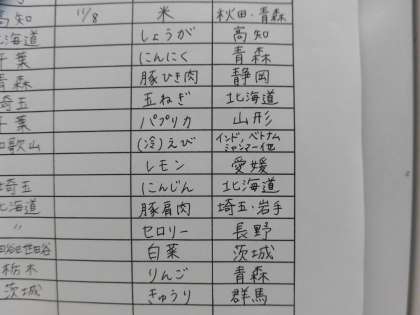 高知 11/8 米 秋田・青森
海道 しょうが 高知
千葉 にんにく 青森
青森 豚ひき肉 静岡
埼玉 玉ねぎ 北海道
千葉 パプリカ 山形
歌山 (冷)えび インド、ベトナム ミャンマー他
レモン 愛媛
埼玉 にんじん 北海道
海道 豚肩肉 埼玉・岩手
〃 セロリー 長野
世田谷 白菜 茨城
栃木 りんご 青森
茨城 きゅうり 群馬